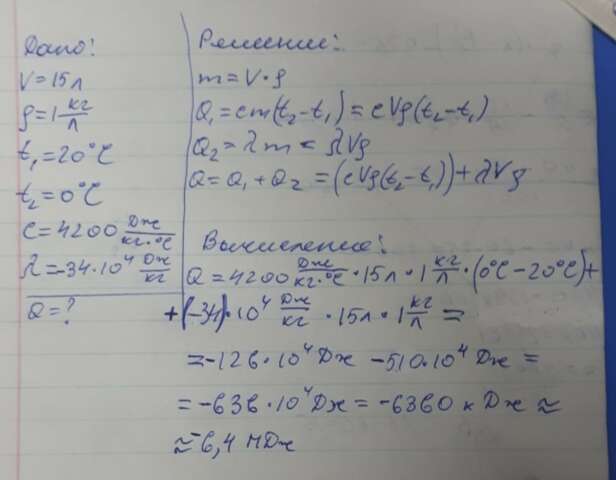 Дано:
V = 15 л
ρ = 1 кг/л
t₁ = 20°C
t₂ = 0°C
c = 4200 Дж/кг·°C
λ = -34·10⁴ Дж/кг
Q = ?
Решение:
m = V·ρ
Q₁ = cm(t₂-t₁) = cVρ(t₂-t₁)
Q₂ = λm = λVρ
Q = Q₁ + Q₂ = (cVρ(t₂-t₁)) + λVρ
Вычисление:
Q = 4200 Дж/кг·°C · 15 л · 1 кг/л · (0°C - 20°C) +
+ (-34)·10⁴ Дж/кг · 15 л · 1 кг/л =
= -126·10⁴ Дж - 510·10⁴ Дж =
= -636·10⁴ Дж = -6360 кДж ≈
≈ -6,4 МДж